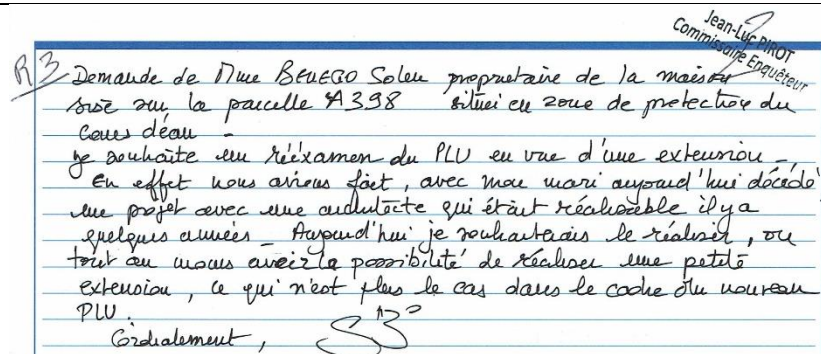 Jean-Luc PIROT
Commissaire Enquêteur
R3
Demande de Mme BENEGO Solen propriétaire de la maison
sise sur la parcelle A398 située en zone de protection du
Cours d'eau -
je souhaite un réexamen du PLU en vue d'une extension -
En effet nous avions fait, avec mon mari aujourd'hui décédé
un projet avec une architecte qui était réalisable il y a
quelques années - Aujourd'hui je souhaiterais le réaliser, ou
tout au moins avoir la possibilité de réaliser une petite
extension, ce qui n'est plus le cas dans le cadre du nouveau
PLU.
Cordialement,